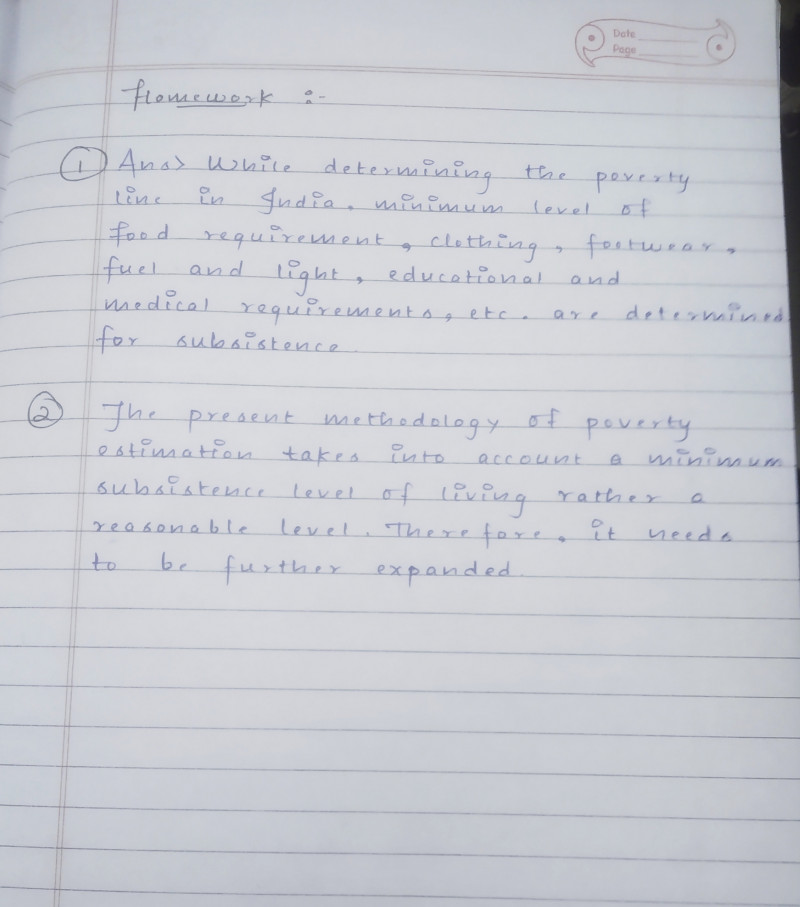 Date
Page
Homework :-
① Ans> While determining the poverty
line in India, minimum level of
food requirement, clothing, footwear,
fuel and light, educational and
medical requirements, etc. are determined
for subsistence.
② The present methodology of poverty
estimation takes into account a minimum
subsistence level of living rather a
reasonable level. Therefore, it needs
to be further expanded.